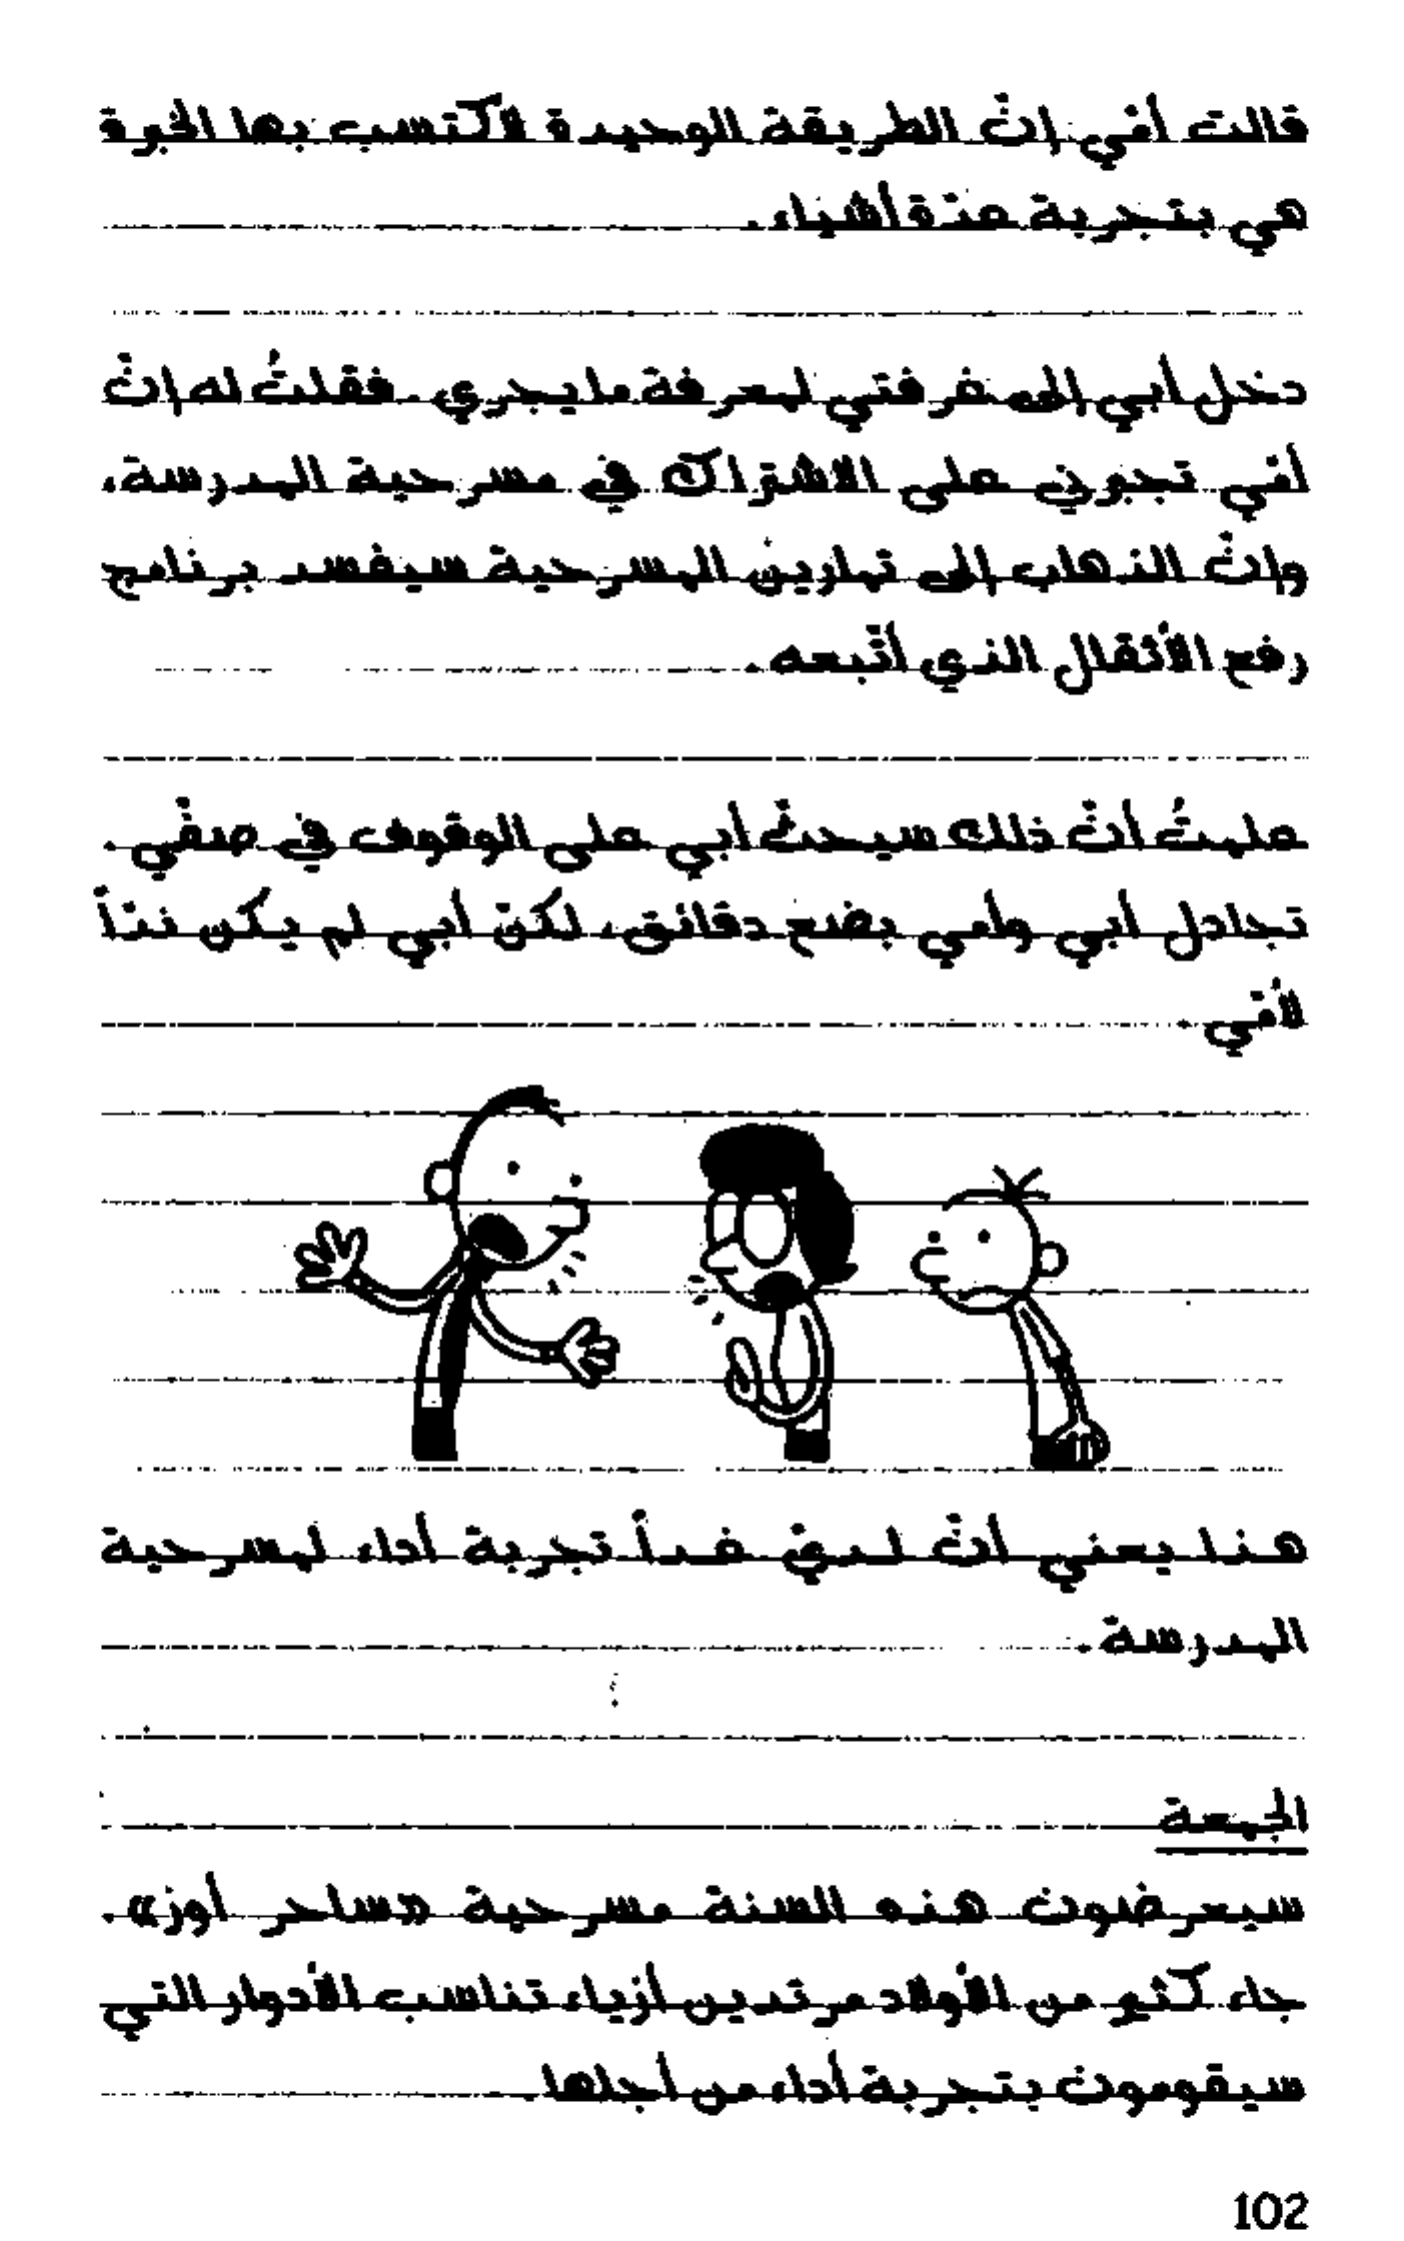 قالت أمّي إنّ الطريقة الوحيدة لأكتسب بها الخبرة
هي بتجربة عدّة أشياء.
دخل أبي إلى غرفتي لمعرفة ما يجري. فقلتُ له إنّ
أمّي تجبرني على الاشتراك في مسرحية المدرسة،
وإنّ الذهاب إلى تمارين المسرحية سيفسد برنامج
رفع الأثقال الذي أتّبعه.
علمتُ أنّ ذلك سيحثّ أبي على الوقوف في صفّي.
تجادل أبي وأمي بضع دقائق، لكنّ أبي لم يكن ندّاً
لأمّي.
هذا يعني أنّ لديّ غداً تجربة أداء لمسرحية
المدرسة.
الجمعة
سيعرضون هذه السنة مسرحية «ساحر أوز».
جاء كثير من الأولاد مرتدين أزياء تناسب الأدوار التي
سيقومون بتجربة أداء من أجلها.
102